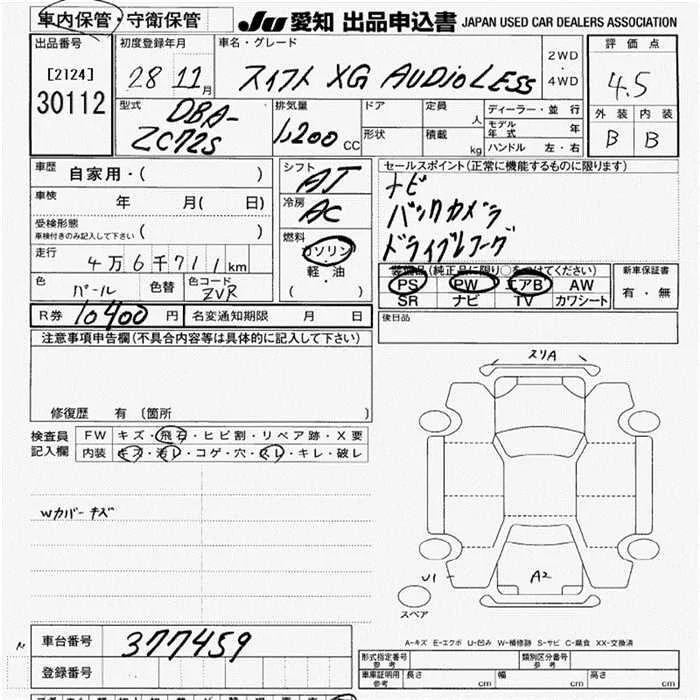 車内保管・守衛保管 JU 愛知 出品申込書 JAPAN USED CAR DEALERS ASSOCIATION
出品番号 初度登録年月 車名・グレード 2WD・4WD 評価点
[2124] 28 11月 スイフト XG AUDIOLESS 4.5
30112
型式 DBA-ZC72S 排気量 1,200 CC ドア 定員 人 ディーラー・並行 外装 内装
形状 積載 kg モデル年式 年 B B
ハンドル 左・右
車歴 自家用・( ) シフト AT セールスポイント(正常に機能するものに限ります)
車検 年 月( 日) 冷房 AC ナビ
受検形態 ( ) バックカメラ
車検付きのみ記入して下さい 燃料 ドライブレコーダ
走行 4万6千711km ガソリン・軽・油 ( )
装備品(純正品に限り○をつけてください) 新車保証書
色 パール 色替 色コード ZVR PS PW エアB AW 有・無
SR ナビ TV カワシート
R券 10400 円 名変通知期限 月 日 後日品
注意事項申告欄(不具合内容等は具体的に記入して下さい)
修復歴 有 〔箇所 〕
検査員記入欄 FW キズ・飛石・ヒビ割・リペア跡・X要
内装 キズ・汚レ・コゲ・穴・スレ・キレ・破レ
Wカバーキズ
スリA
U1 A2
スペア
A-キズ E-エクボ U-凹み W-補修跡 S-サビ C-腐食 XX-交換済
車台番号 377459
登録番号
形式指定番号 参考 類別区分番号 参考
車庫証明用 参考 長さ cm 幅 cm 高さ cm